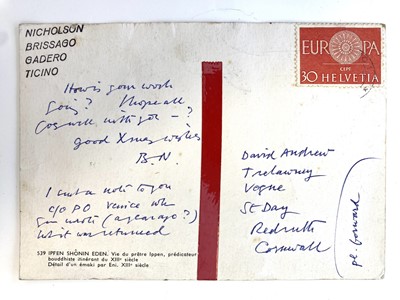 NICHOLSON
BRISSAGO
GADERO
TICINO
How is your work
going? I hope all
goes well with you – ?
good Xmas wishes
B.N.
I sent a note to you
c/o PO Venice wh
you wrote (a year ago?)
but it was returned
539 IPPEN SHÔNIN EDEN. Vie du prêtre Ippen, prédicateur
bouddhiste itinérant du XIIIe siècle
Détail d'un émaki par Eni, XIIIe siècle
EUROPA
CEPT
30 HELVETIA
David Andrew
Trelawney
Vogue
St Day
Redruth
Cornwall
pl. forward